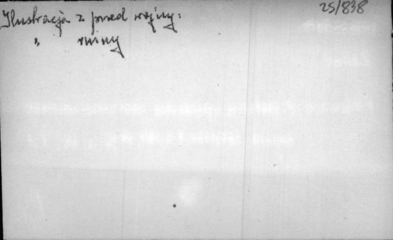 25/838
Ilustracja z przed wojny:
" ruiny